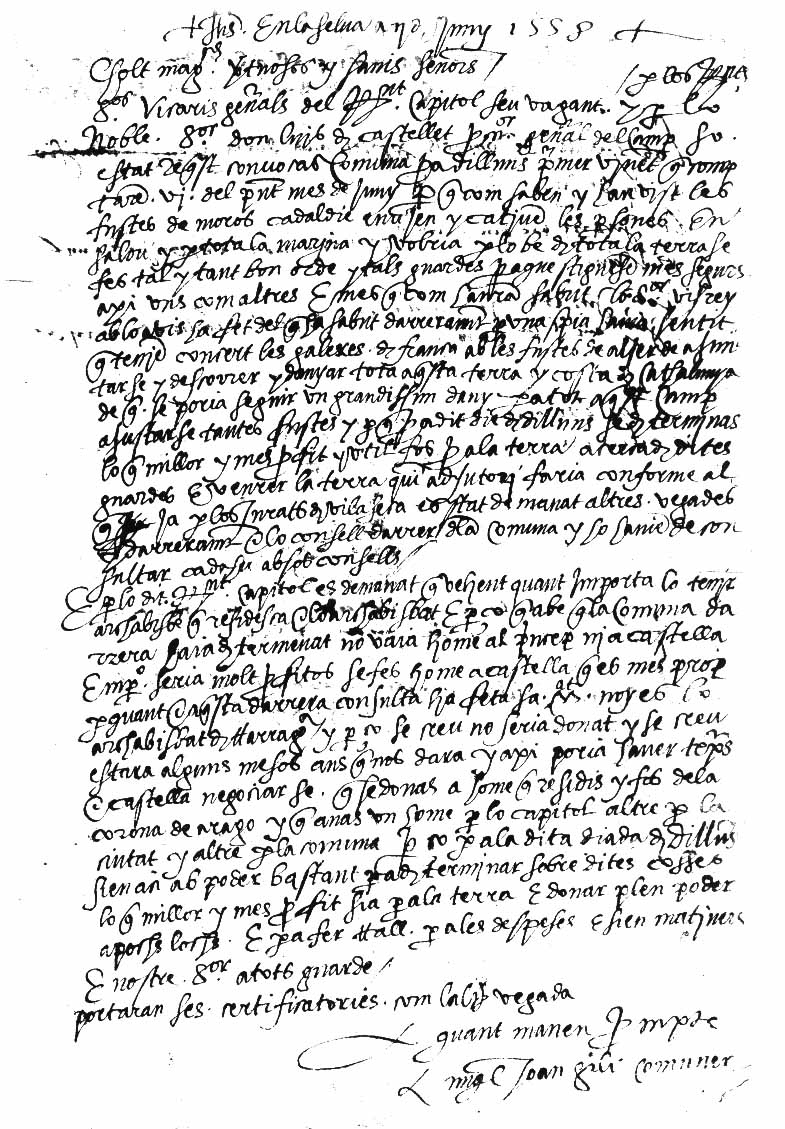 + Jhs. En la selva a ... Juny 1558 +
molt magcs. y savis señors /
/ p los ...
sors Vicaris geñals del ... Capitol seu vagant. y p lo
Noble. sor don luis d castellet ... geñal del Camp so.
estat reqst convocas Comuna p a dilluns pmer vinet q comp
tarē. vi. del pnt mes de juny p q com saben y han vist les
fustes de moros cada l die envisen y cativē les psones. En
salou y p tota la marina y volria p lo be d tota la terra se
fes tal y tant bon orde y tals guardes p a que stiguesē mes segurs
axi uns com altres E mes q com hauran sabut lo sor visrey
ab lo avis ha fet del q ha sabut darreramt p una spia havia sentit
q teniē concert les galeres. d frança ab les fustes de alger de ajun
tarse y descorrer y danyar tota aqsta terra y costa d Cathalunya
de q. se poria seguir un grandissim dany p a tot aqst Camp
ajustarse tantes fustes y p q p a dit die d dilluns se determinas
lo q millor y mes pfit y util fos p a la terra acerca d dites
guardes E venrer la terra quin adjutori faria conforme al
q ja p los jurats d vilaseca es stat demanat altres. vegades
E darreramt E lo consell darrer d la Comuna y so havie de con
sultar cada hu ab sos consells /
E p lo dit ... capitol es demanat q vehent quant importa lo tenir
archabisbe q residesca E lo archabisbat E p ço q abe q la Comuna da
rrera haia determinat no vaia home al princep ni a castella
E mpo. seria molt pfitos se fes home a castella q es mes prop
p quant E aqsta darrera consulta ha feta sa. mt. no y es lo
archabisbat d tarragã y p ço se creu no seria donat y se creu
estara alguns mesos ans q nos dara y axi poria haver temps
E castella negociar se. q se donas a home q residis y fos de la
corona de arago y q anas un home p lo capitol altre p la
ciutat y altre p la comuna p ço p a la dita diada d dilluns
sien açi ab poder bastant p a determinar sobre dites coses
lo q millor y mes pfit sia p a la terra E donar plen poder
a pochs lochs. E p a fer tall. p a les despeses E sien matiners
E nostre. sor a tots guarde /
portaran ses. certificatories. com l altra vegada
quant manen ...
migl Joan gili Comuner